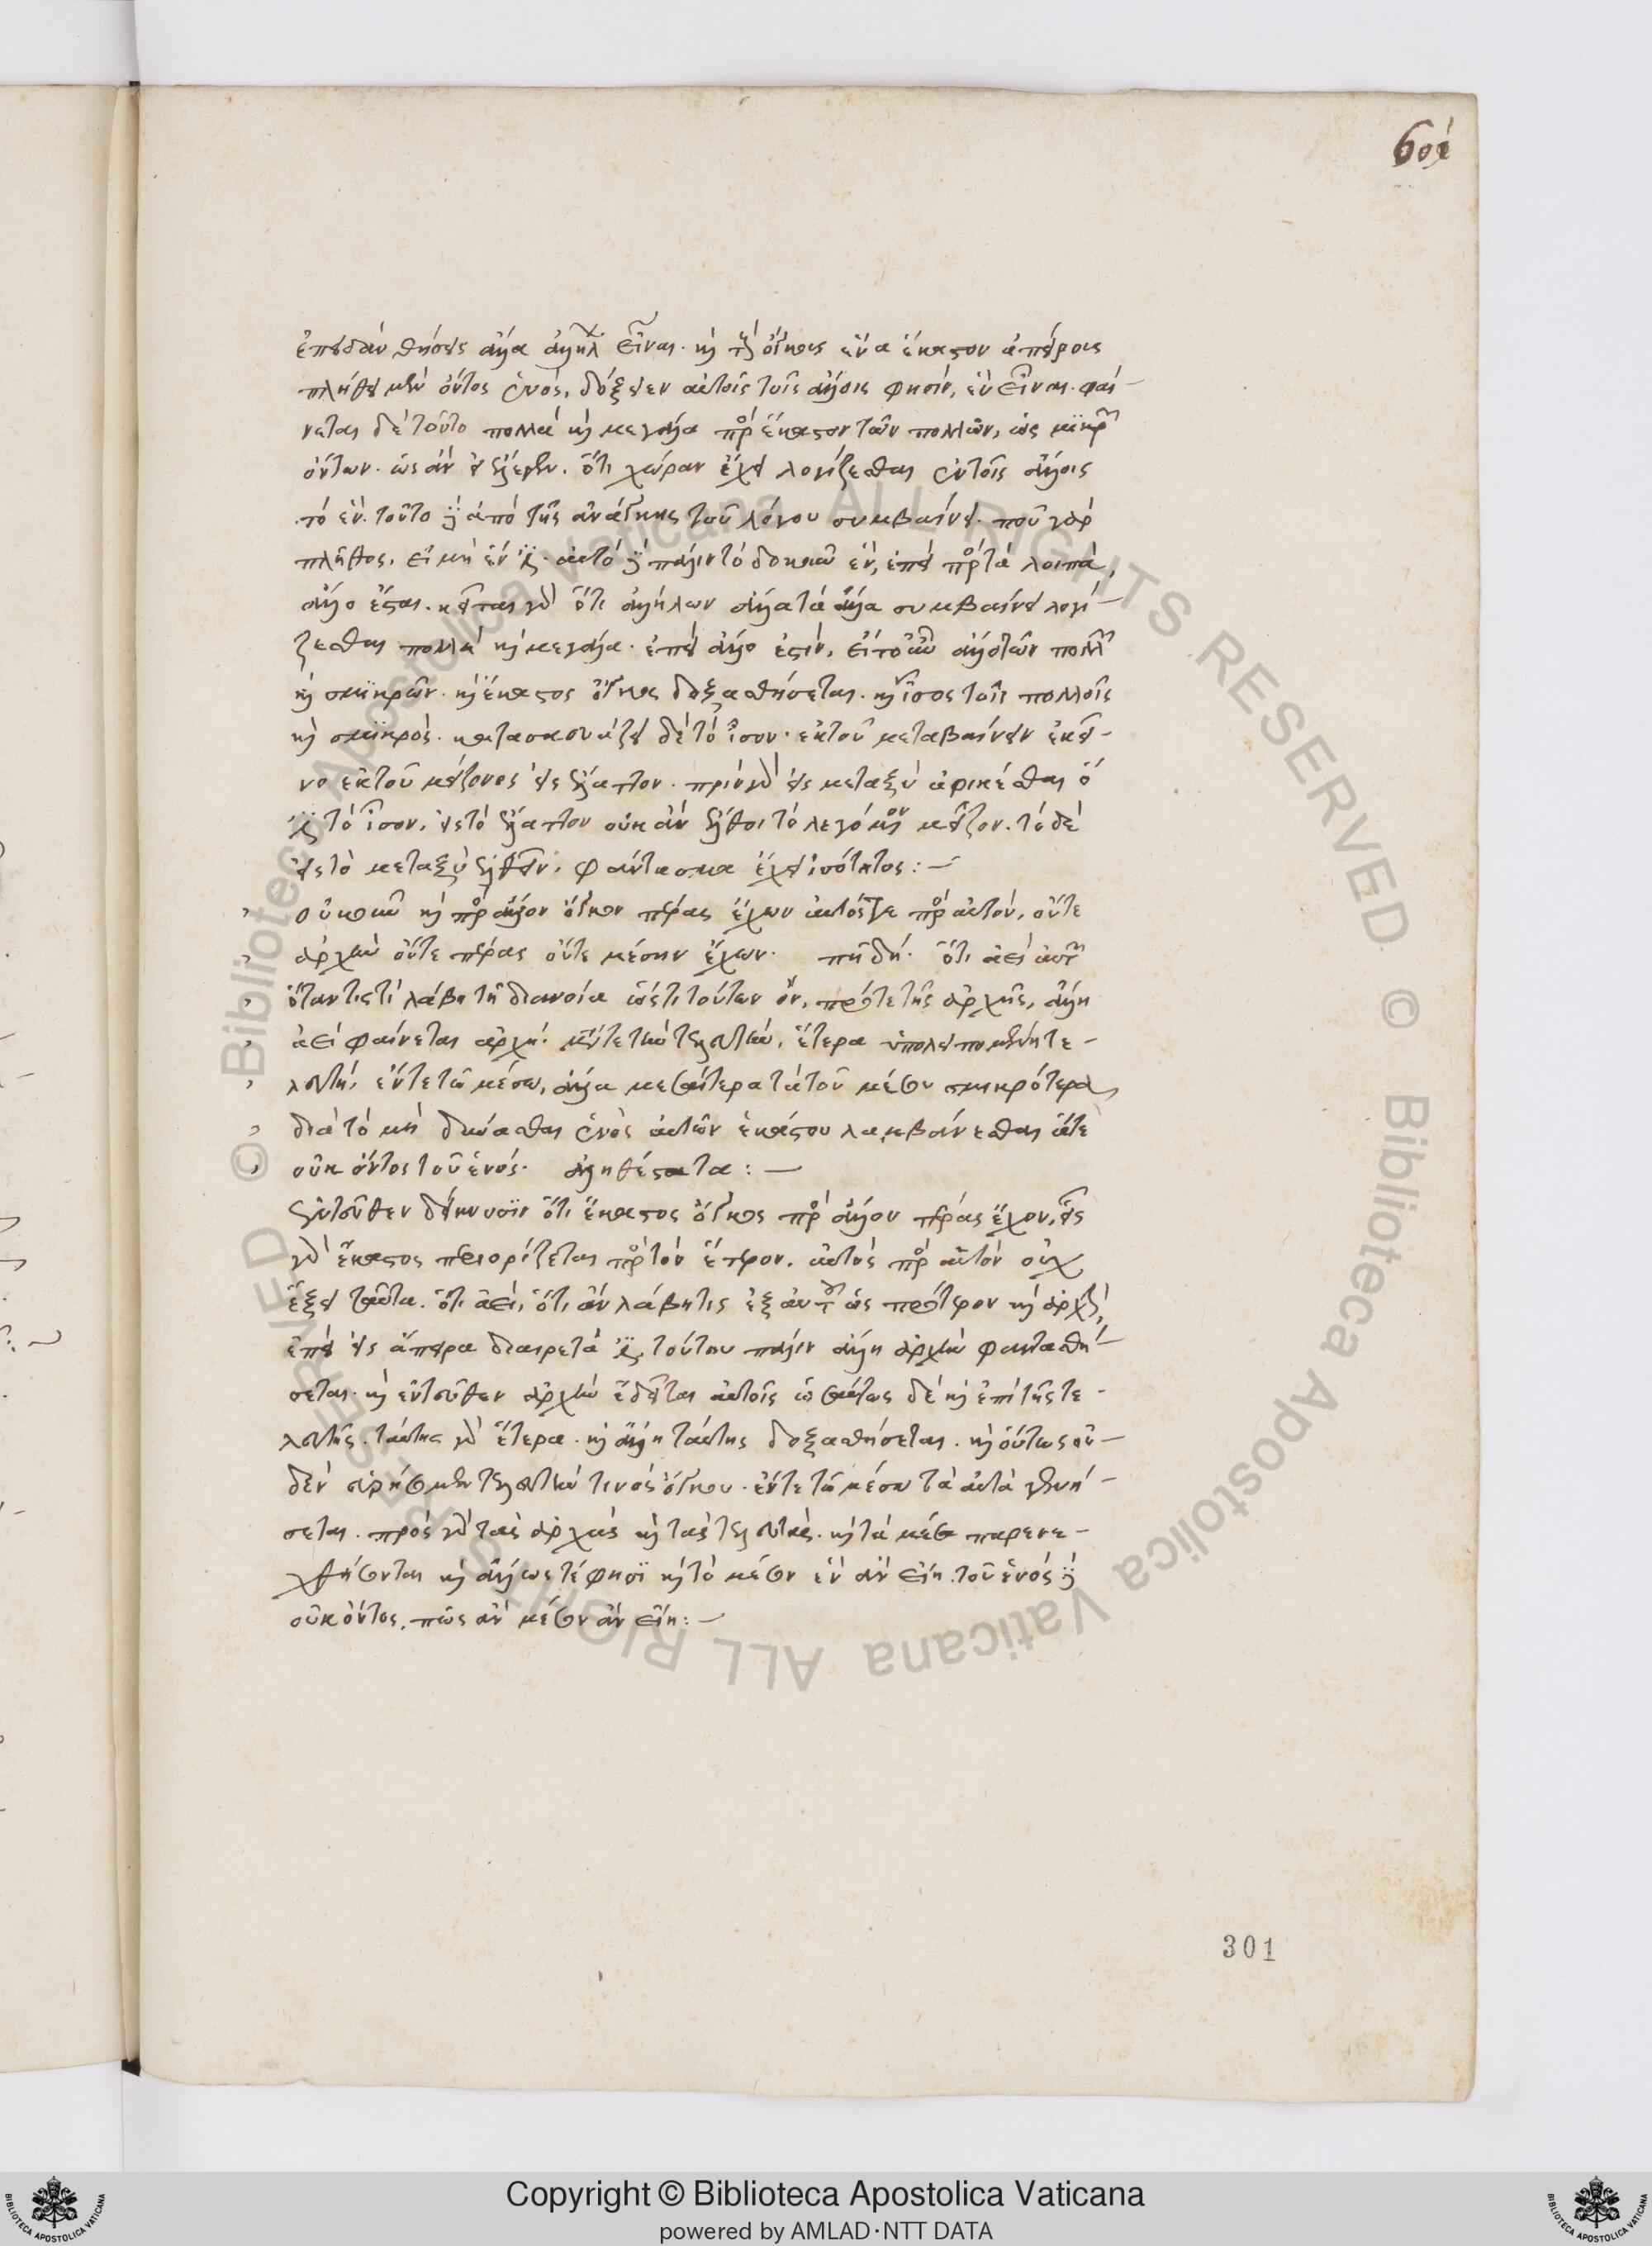 601
ἐπειδὰν θήσεις ἄλλα ἀλλήλων εἶναι. καὶ τῶν ὄγκων ἕνα ἕκαστον ἀπείροις
πλήθει μὴ ὄντος ἑνός, δόξειεν αὐτοῖς τοῖς ἄλλοις φησίν, ἓν εἶναι. φαί-
νεται δὲ τοῦτο πολλὰ καὶ μεγάλα πρὸς ἕκαστον τῶν πολλῶν, ὡς σμικρῶν
ὄντων. ὡς ἂν εἰ ἔλεγεν. ὅτι χώραν ἔχει λογίζεσθαι ἐν τοῖς ἄλλοις
τὸ ἕν. τοῦτο γὰρ ἀπὸ τῆς ἀνάγκης τοῦ λόγου συμβαίνει. ποῦ γὰρ
πλῆθος, εἰ μὴ ἕν ἐστι. αὐτὸ γὰρ πάλιν τὸ δοκοῦν ἕν, ἐπεὶ πρὸς τὰ λοιπά,
ἄλλο ἔσται. κεῖται γὰρ ὅτι ἀλλήλων ἄλλα τὰ ἄλλα συμβαίνει λογί-
ζεσθαι πολλὰ καὶ μεγάλα. ἐπεὶ ἄλλο ἐστίν, εἴτουν ἄλλο τῶν πολλῶν
καὶ σμικρῶν. καὶ ἕκαστος ὄγκος δοξασθήσεται. καὶ ἴσος τοῖς πολλοῖς
καὶ σμικροῖς. κατασκευάζει δὲ τὸ ἴσον. ἐκ τοῦ μεταβαίνειν ἐκεῖ-
νο ἐκ τοῦ μείζονος εἰς ἔλαττον. πρὶν γὰρ εἰς μεταξὺ ἀφικέσθαι ὅ
ἐστι τὸ ἴσον, εἰς τὸ ἔλαττον οὐκ ἂν ἔλθοι τὸ λεγόμενον μεῖζον. τὸ δὲ
εἰς τὸ μεταξὺ ἐλθεῖν, φάντασμα ἔχει ἰσότητος:—
οὐκοῦν καὶ πρὸς ἄλλον ὄγκον πέρας ἔχων αὐτός γε πρὸς αὑτόν, οὔτε
ἀρχὴν οὔτε πέρας οὔτε μέσην ἔχων. πῇ δή. ὅτι ἀεὶ αὐτῶν
ὅταν τίς τι λάβῃ τῇ διανοίᾳ ὥς τι τούτων ὄν, πρό τε τῆς ἀρχῆς, ἄλλη
ἀεὶ φαίνεται ἀρχή. μετά τε τὴν τελευτήν, ἑτέρα ὑπολειπομένη τε-
λευτή, ἔν τε τῷ μέσῳ, ἄλλα μεσαίτερα τὰ τοῦ μέσου σμικρότερα
διὰ τὸ μὴ δύνασθαι ἑνὸς αὐτῶν ἑκάστου λαμβάνεσθαι ἅτε
οὐκ ὄντος τοῦ ἑνός. ἀληθέστατα:—
ἐντεῦθεν δείκνυσιν ὅτι ἕκαστος ὄγκος πρὸς ἄλλον πέρας ἔχον, εἷς
γὰρ ἕκαστος περιορίζεται πρὸς τὸν ἕτερον. αὐτὸς πρὸς αὑτὸν οὐχ
ἕξει ταῦτα. ὅτι ἀεί, ὅτι ἂν λάβῃ τις ἐξ αὐτῶν ὡς πρότερον καὶ ἀρχήν,
ἐπεὶ εἰς ἄπειρα διαιρετά ἐστι, τούτου πάλιν ἄλλη ἀρχὴ φαντασθή-
σεται. καὶ ἐντεῦθεν ἀρχὴ οὐδεῖται αὐτοῖς ὡσαύτως δὲ καὶ ἐπὶ τῆς τε-
λευτῆς. ταύτης γὰρ ἑτέρα. καὶ ἄλλη ταύτης δοξασθήσεται. καὶ οὕτως οὐ-
δὲν εὑρήσομεν τελευτήν τινος ὄγκου. ἔν τε τῷ μέσῳ τὰ αὐτὰ γενή-
σεται. πρὸς γὰρ τὰς ἀρχὰς καὶ τὰς τελευτάς. καὶ τὰ μέσα παρενε-
χθήσονται καὶ ἄλλως τέ φησι καὶ τὸ μέσον ἓν ἂν εἴη. τοῦ ἑνὸς γὰρ
οὐκ ὄντος, πῶς ἂν μέσον ἂν εἴη:—
301
© Biblioteca Apostolica Vaticana ALL RIGHTS RESERVED © Biblioteca Apostolica Vaticana ALL RIGHTS RESERVED
Copyright © Biblioteca Apostolica Vaticana
powered by AMLAD·NTT DATA
BIBLIOTECA APOSTOLICA VATICANA
BIBLIOTECA APOSTOLICA VATICANA